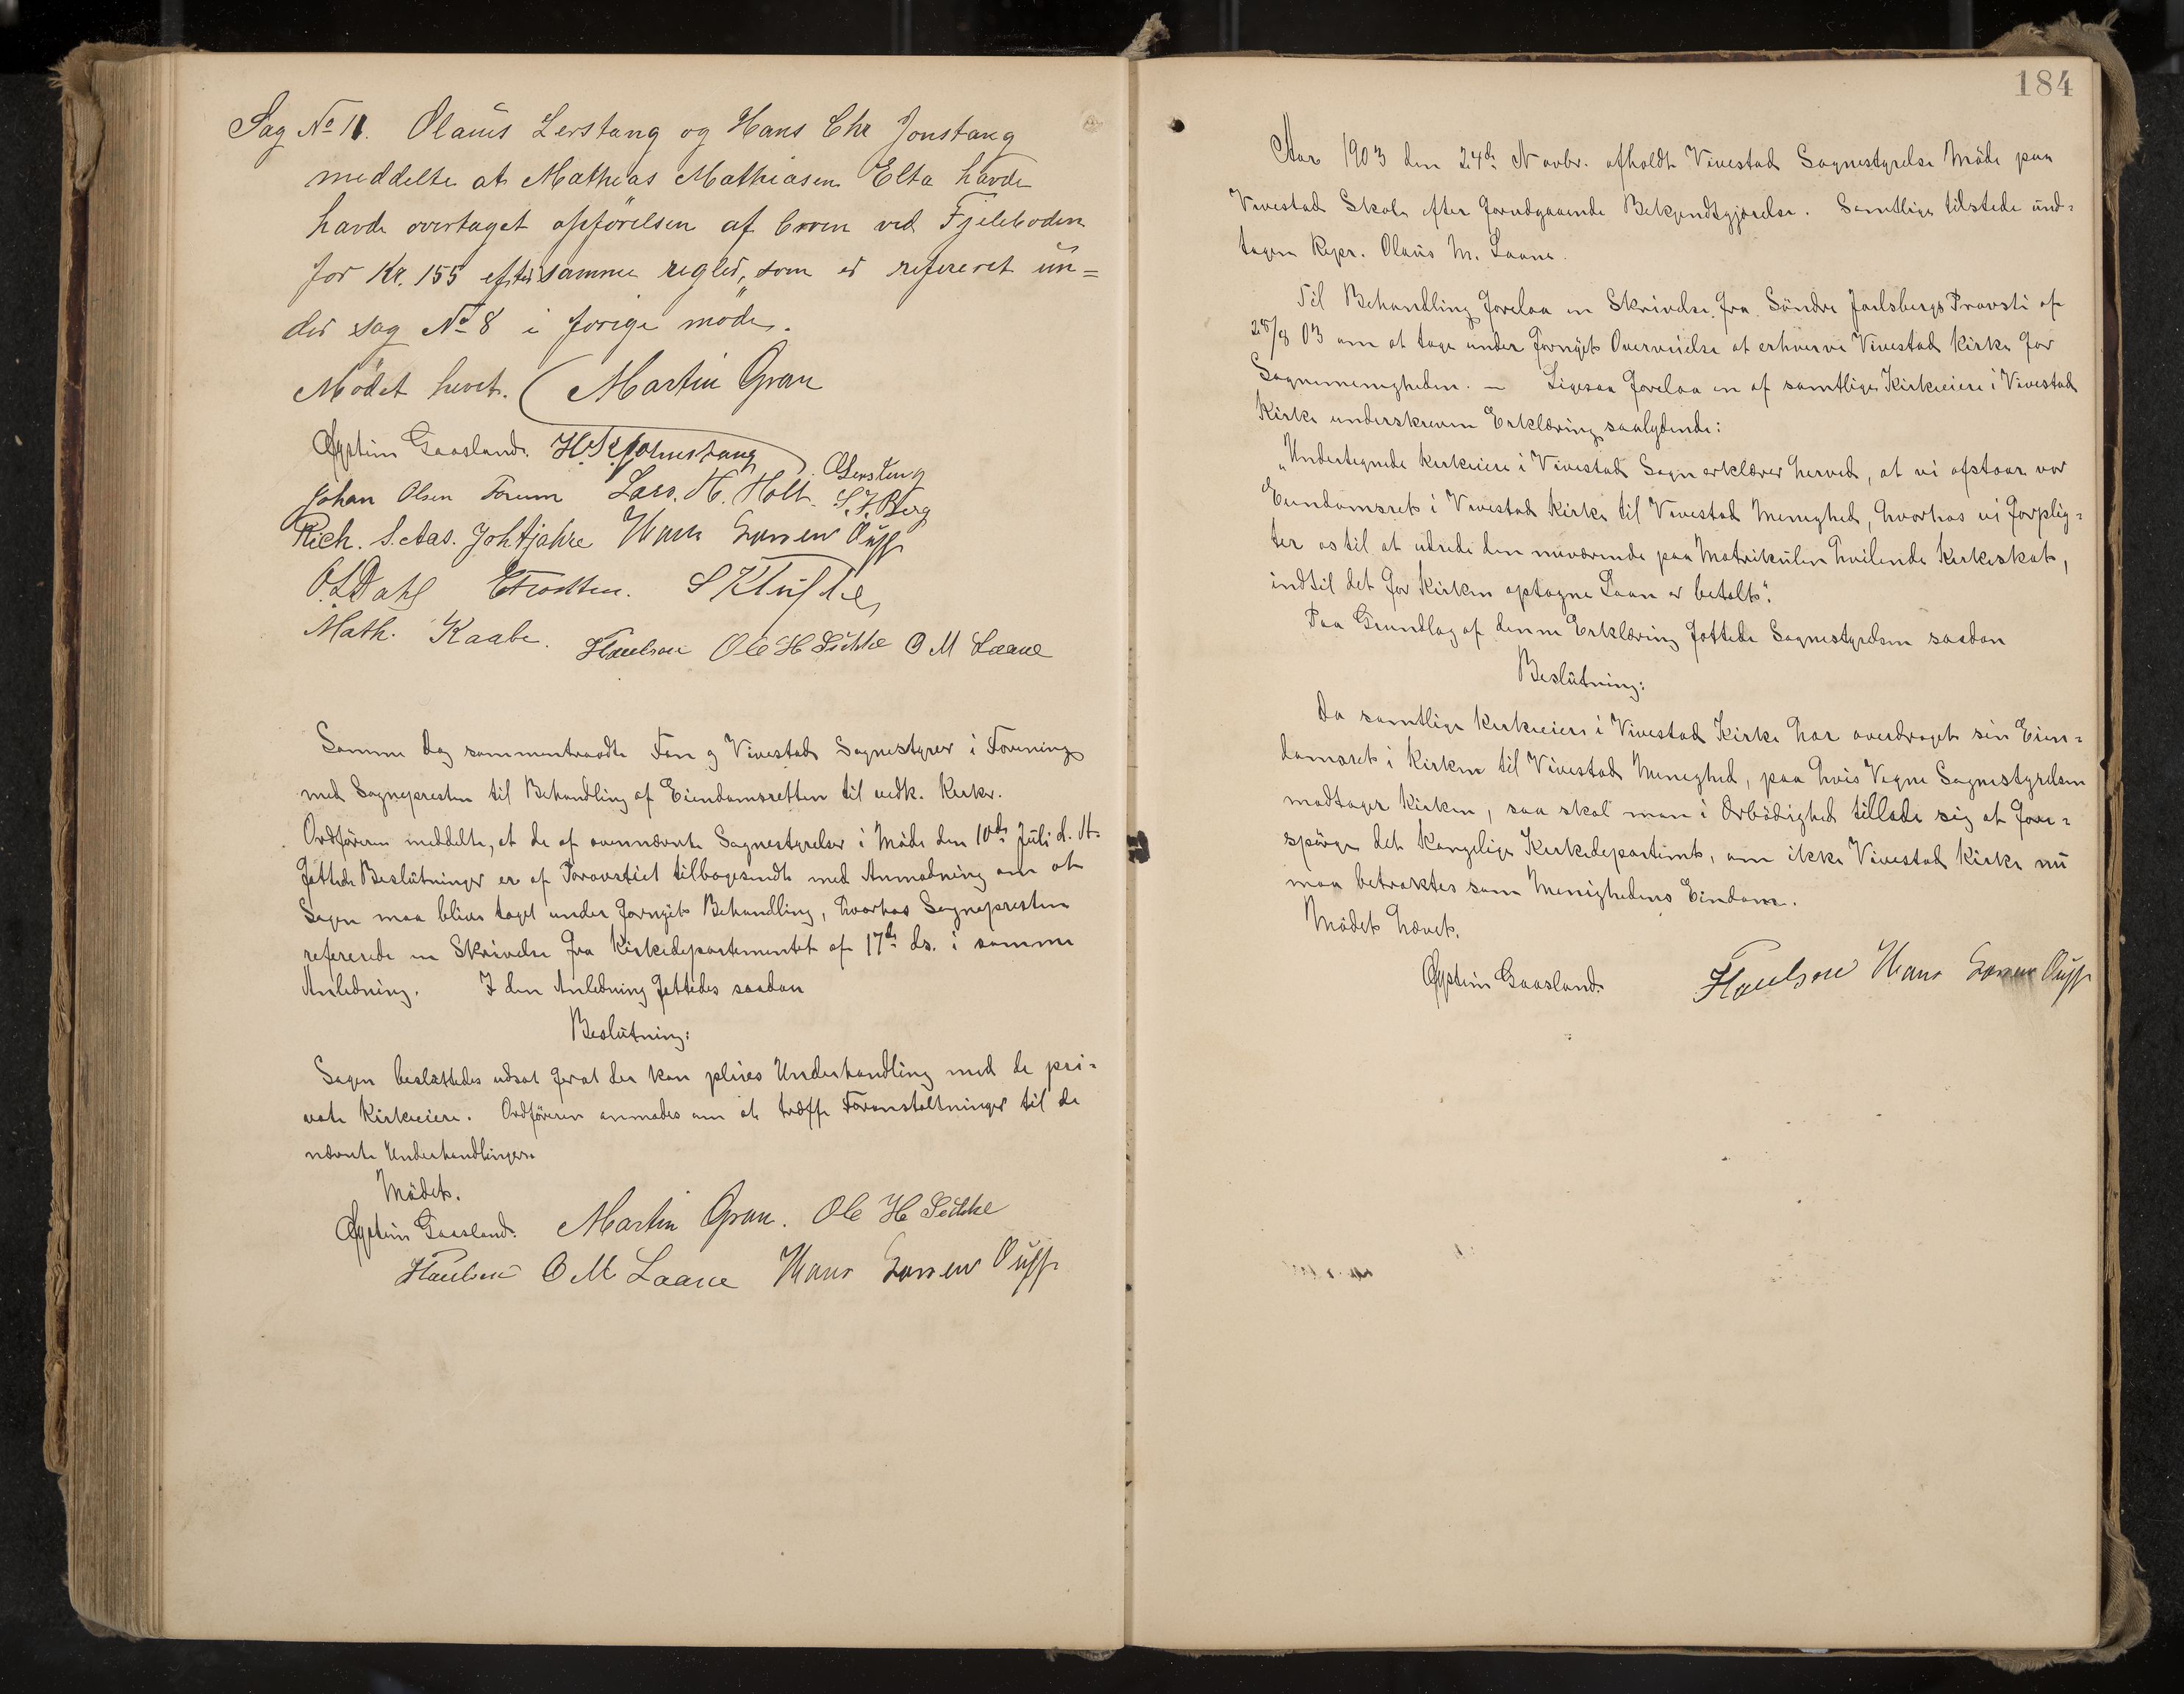 Sag No 11. Olaus Lerstang og Hans Chr Jonstang
meddelte at Mathias Mathiasen Elta havde
havde overtaget opførelsen af broen ved Fjeleboden
for Kr. 155 efter samme regler, som er refereret un=
der sag No 8 i forige møde.
Mødet hevet. Martin Gran
Øystein Gaasland. H. Kr Johnstang
O Lerstang
Johan Olsen Forum Lars. H. Holt. S. J. Berg
Rich. S. Aas. Joh Hjahre Hans Larsen Ruff
O. L. Dahl E Trodsten. S Klufte
Math. Kaabe. HPaulsen Ole H Liehke O M Laane
Samme Dag sammentraadte Fon og Vivestad Sognestyrer i Forening
med Sognepresten til Behandling af Eiendomsretten til vedk. Kirker.
Ordføreren meddelte, at de af ovennævnte Sognestyrelser i Møde den 10de Juli d. A.
fattede Beslutninger er af Provstiet tilbagesendt med Anmodning om at
Sagen maa blive taget under fornyet Behandling, hvorhos Sognepresten
refererede en Skrivelse fra Kirkedepartementet af 17de ds. i samme
Anledning. I den Anledning fattedes saadan
Beslutning:
Sagen besluttedes udsat forat der kan pleies Underhandling med de pri=
vate Kirkeeiere. Ordføreren anmodes om at træffe Foranstaltninger til de
nævnte Underhandlinger.
Mødet.
Øystein Gaasland. Martin Gran. Ole H Liehke
HPaulsen O M Laane Hans Larsen Ruff
184
Aar 1903 den 24de Novbr. afholdt Vivestad Sognestyrelse Møde paa
Vivestad Skole efter forudgaaende Bekjendtgjørelse. Samtlige tilstede und=
tagen Repr. Olaus M. Laane.
Til Behandling forelaa en Skrivelse fra Søndre Jarlsbergs Provsti af
25/8 03 om at tage under fornyet Overveielse at erhverve Vivestad Kirke for
Sognemenigheden. — Ligesaa forelaa en af samtlige Kirkeeiere i Vivestad
Kirke underskreven Erklæring saalydende:
"Undertegnede Kirkeeiere i Vivestad Sogn erklærer herved, at vi afstaar vor
Eiendomsret i Vivestad Kirke til Vivestad Menighed, hvorhos vi forplig=
ter os til at udrede den nuværende paa Matrikulen hvilende Kirkeskat,
indtil det for Kirken optagne Laan er betalt".
Paa Grundlag af denne Erklæring fattede Sognestyrelsen saadan
Beslutning:
Da samtlige Kirkeeiere i Vivestad Kirke har overdraget sin Eien=
domsret i Kirken til Vivestad Menighed, paa hvis Vegne Sognestyrelsen
modtager Kirken, saa skal man i Ærbødighed tillade sig at fore=
spørge det Kongelige Kirkedepartemt, om ikke Vivestad Kirke nu
maa betraktes som Menighedens Eiendom.
Mødet hævet.
Øystein Gaasland. HPaulsen Hans Larsen Ruff